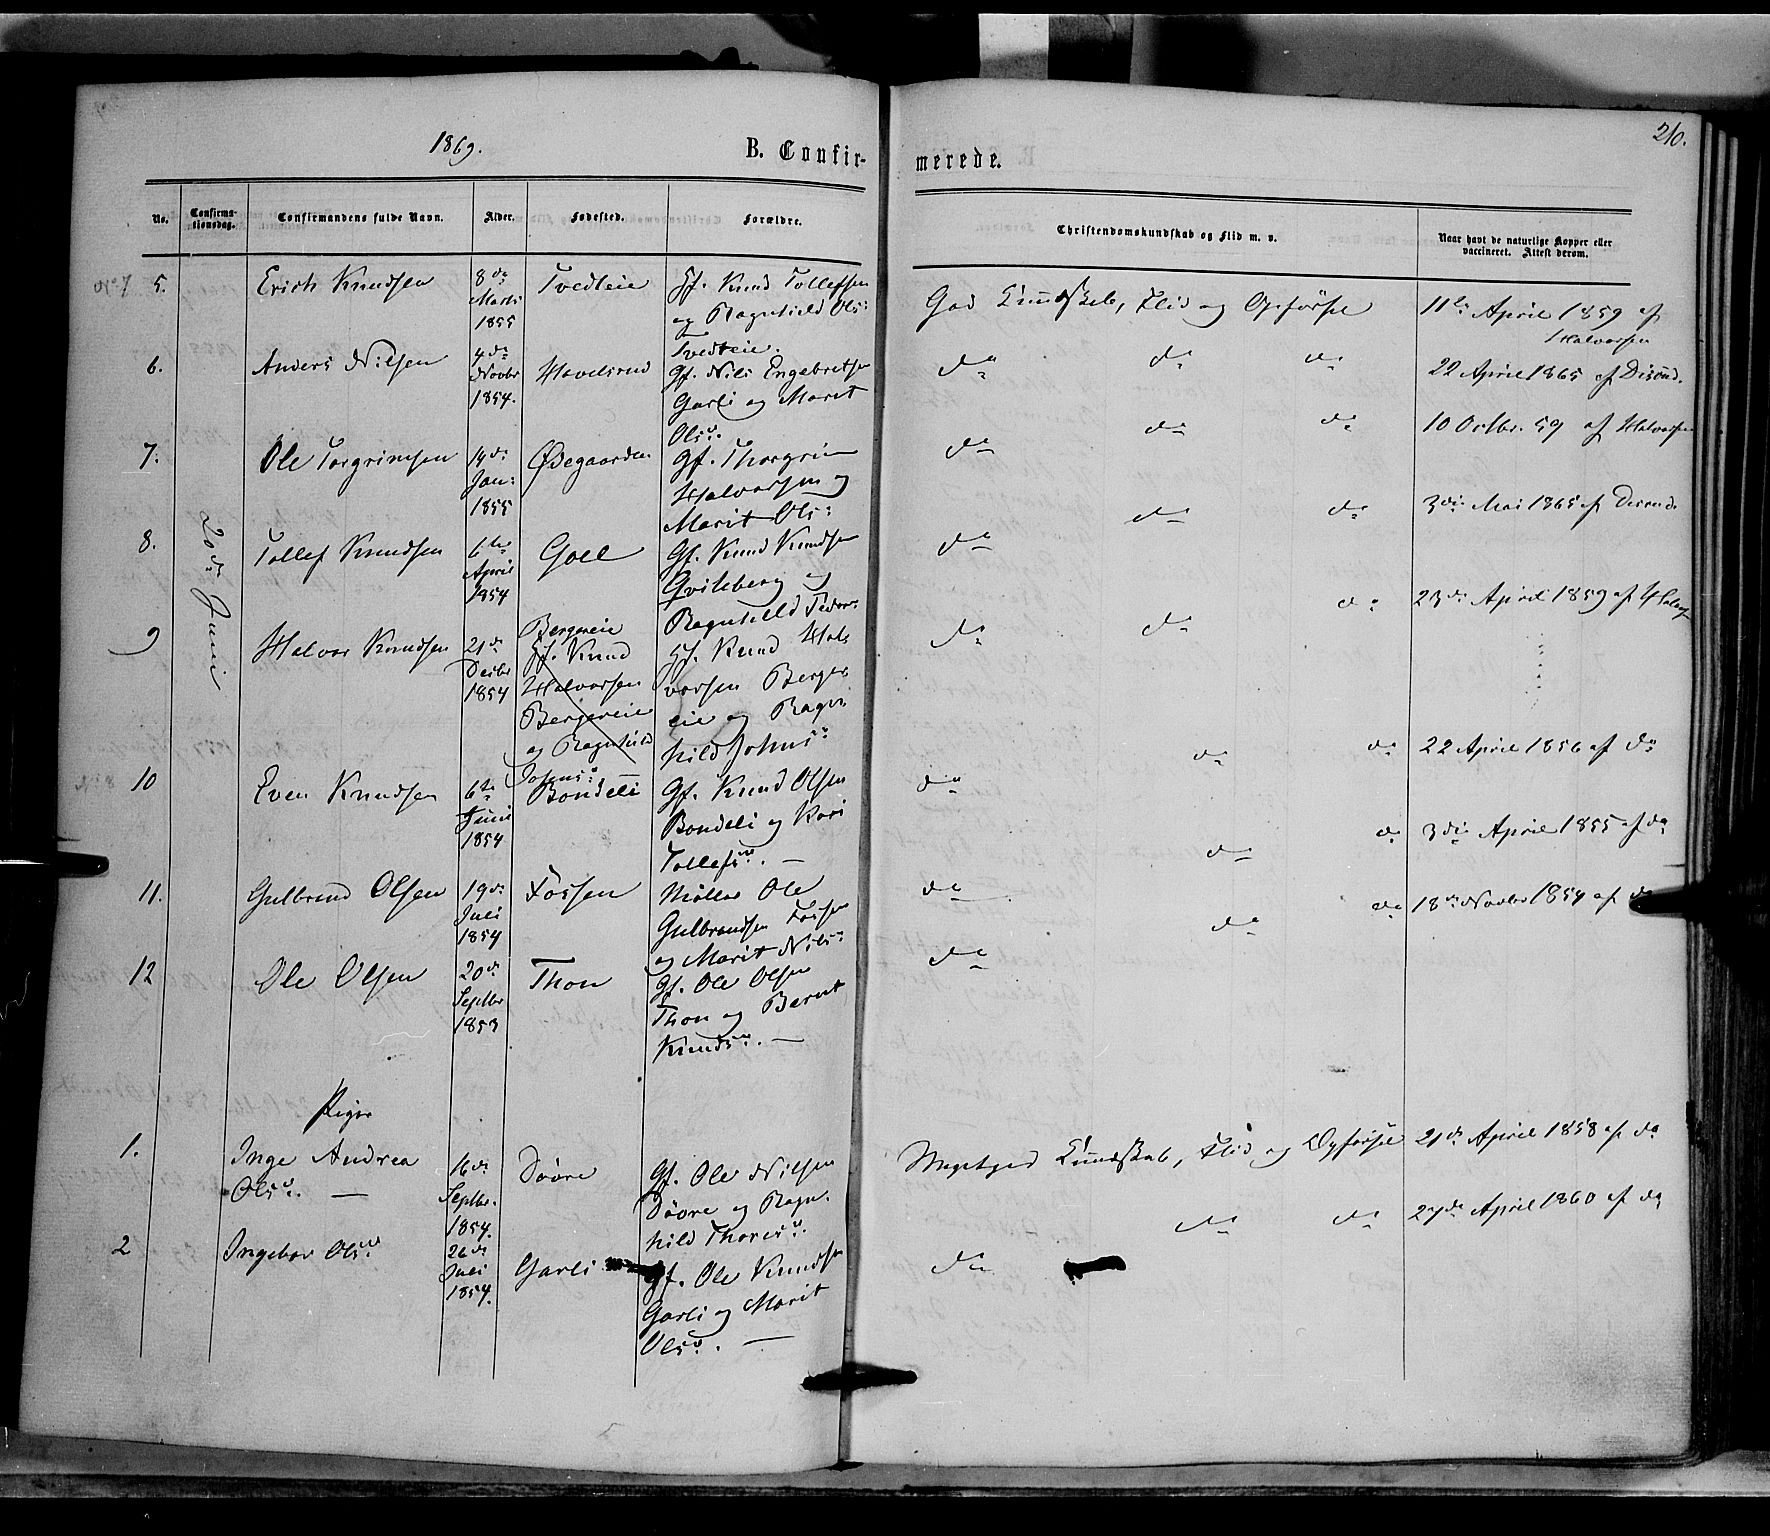 1869.
B. Confir-
merede.
210.
No.
Confirma-
tionsdag.
Confirmandens fulde Navn.
Alder.
Fødested.
Forældre.
Christendomskundskab og Flid m. v.
Naar havt de naturlige Kopper eller
vaccineret. Attest derom.
20de Juni
5.
Erich Knudsen
8de
Marts
1855
Tvedteie
Hf. Knud Tollefsen
og Ragnhild Ols:
Tvedteie.
God Kundskab, Flid og Opførsel
11te April 1859 af
Halvorsen
6.
Anders Nilsen
4de
Novbr
1854.
Havelsrud
Gf. Nils Engebretsen
Garli og Marit
Olsd.
do
do
do
22 April 1865 af Disrud.
7.
Ole Torgrimsen
14de
Jan:
1855
Ødegaarden
Gf. Thorgrim
Halvorsen og
Marit Ols:
do
do
do
10 Octbr. 59 af Halvorsen
8.
Tollef Knudsen
6te
April
1854
Goll
Gf. Knud Knudsen
Qvileberg og
Ragnhild
do
do
do
3die Mai 1865 af Disrud.
9
Halvor Knudsen
21de
Decbr
1854
Bergereie
Hf. Knud
Halvorsen
Bergereie
og Ragnhild
Johns:
Hf. Knud Hal-
vorsen Berger
eie og Ragn
hild Johns:
do
do
do
23de April 1859 af Halvors
10
Even Knudsen
6te
Juni
1854
Bondeli
Gf. Knud Olsen
Bondeli og Kari
Tollefsd. —
do
do
do
22 April 1856 af do
11.
Gulbrand Olsen
19de
Juli
1854
Fossen
Møller Ole
Gulbrandsen Fossen
og Marit Nils:
do
do
do
3die April 1855 af do
12
Ole Olsen
20de
Septbr
1853
Thon
Gf. Ole Olsen
Thon og Berit
Knudsd. —
do
do
do
18de Novbr 1854 af do
Piger
1.
Inge Andrea
Olsd. —
16de
Septbr.
1854.
Døvre
Gf. Ole Nilsen
Døvre og Ragn-
hild Thoresd.
Megetgod Kundskab, Flid og Opførsel
21de April 1858 af do
2
Ingebor Olsd
26de
Juli
1854.
Garli
Gf. Ole Knudsen
Garli og Marit
Olsd. —
do
do
do
27de April 1860 af do